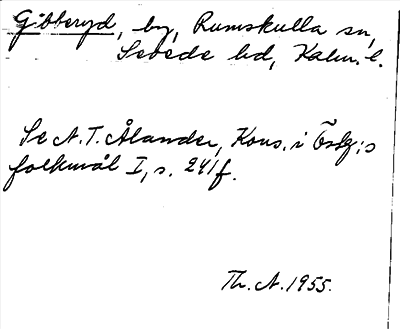 Gibberyd, by, Rumskulla sn,
Sevede hd, Kalm. l.
Se N. T. Ålander, Kons. i Östg:s
folkmål I, s. 241 f.
Th. A. 1955.